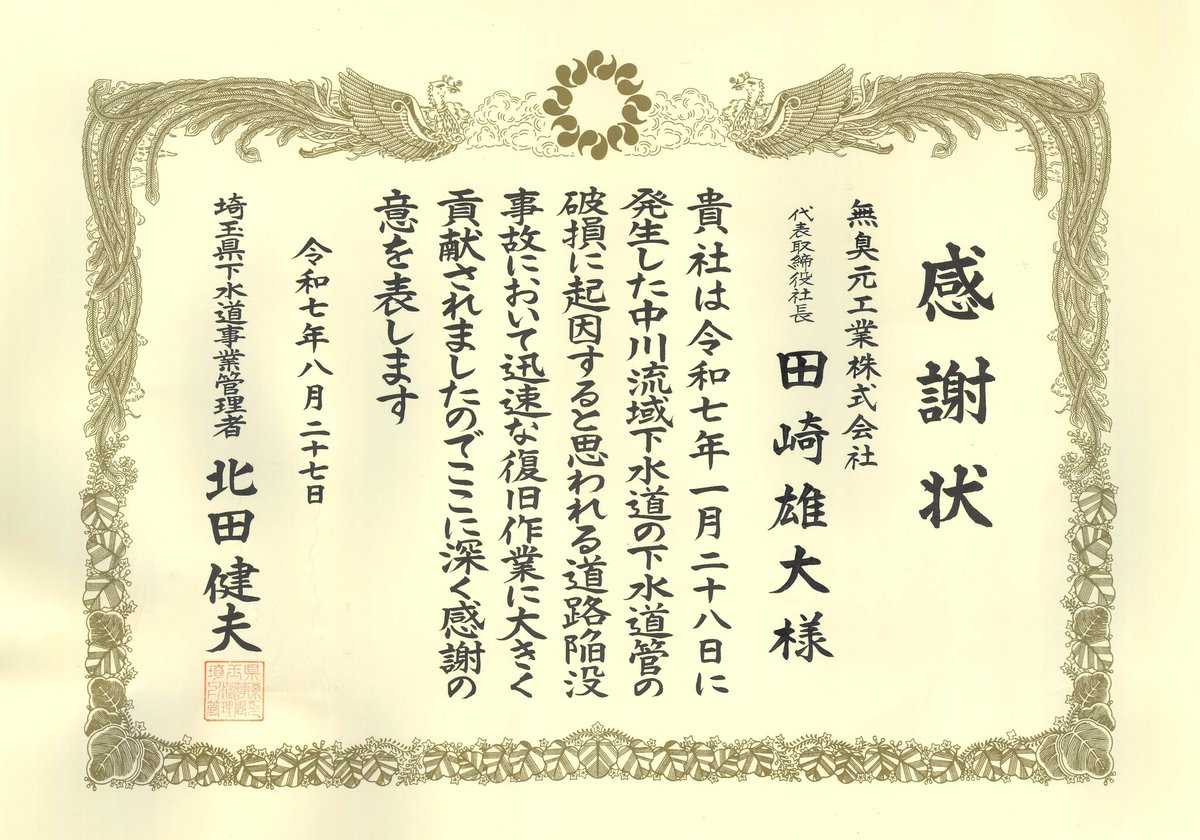 感謝状
無臭元工業株式会社
代表取締役社長 田崎雄大様
貴社は令和七年一月二十八日に
発生した中川流域下水道の下水道管の
破損に起因すると思われる道路陥没
事故において迅速な復旧作業に大きく
貢献されましたのでここに深く感謝の
意を表します
令和七年八月二十七日
埼玉県下水道事業管理者 北田健夫